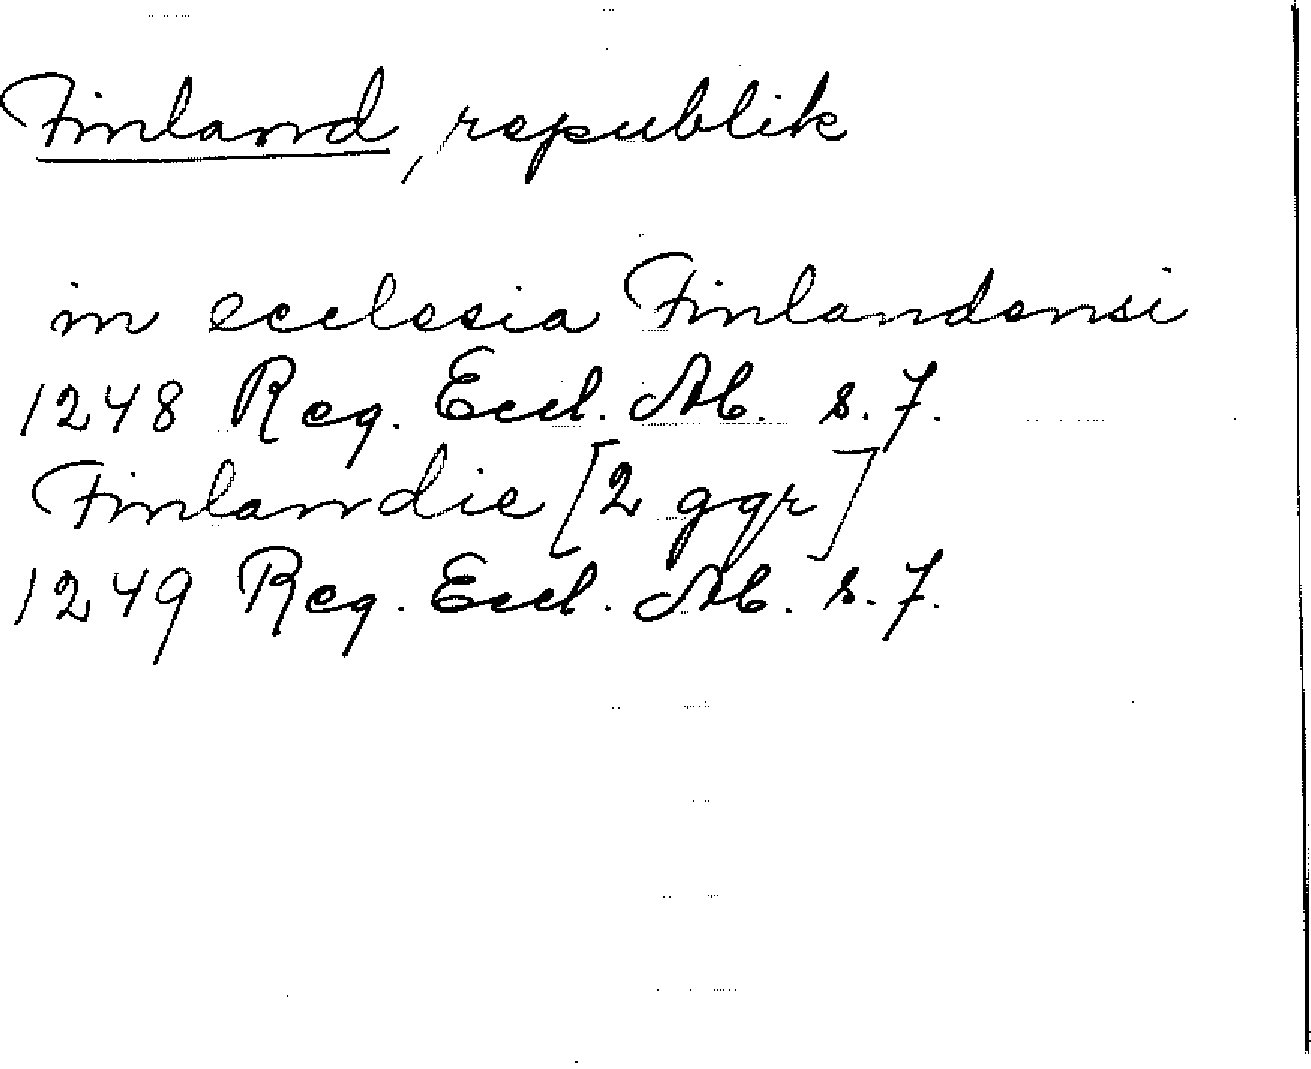 Finland, republik
in ecclesia Finlandensi
1248 Reg. Eccl. Ab. s. 7.
Finlandie [2 ggr]
1249 Reg. Eccl. Ab. s. 7.